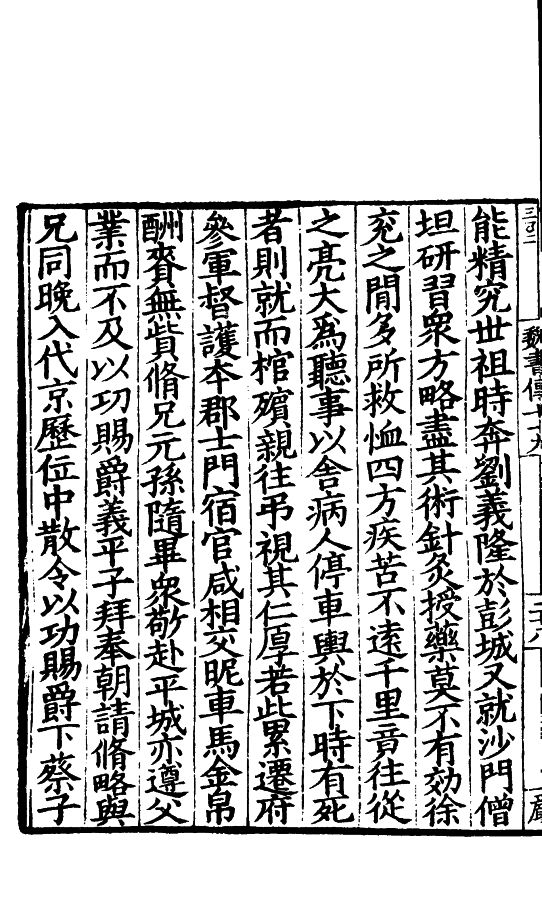 魏書傳七十九
能精究世祖時奔劉義隆於彭城又就沙門僧
坦研習衆方略盡其術針灸授藥莫不有効徐
兖之閒多所救恤四方疾苦不遠千里竟往從
之亮大爲聽事以舍病人停車輿於下時有死
者則就而棺殯親往弔視其仁厚若此累遷府
參軍督護本郡士門宿官咸相交昵車馬金帛
酬賚無貲脩兄元孫隨畢衆敬赴平城亦遵父
業而不及以功賜爵義平子拜奉朝請脩略與
兄同晚入代京歷位中散令以功賜爵下蔡子